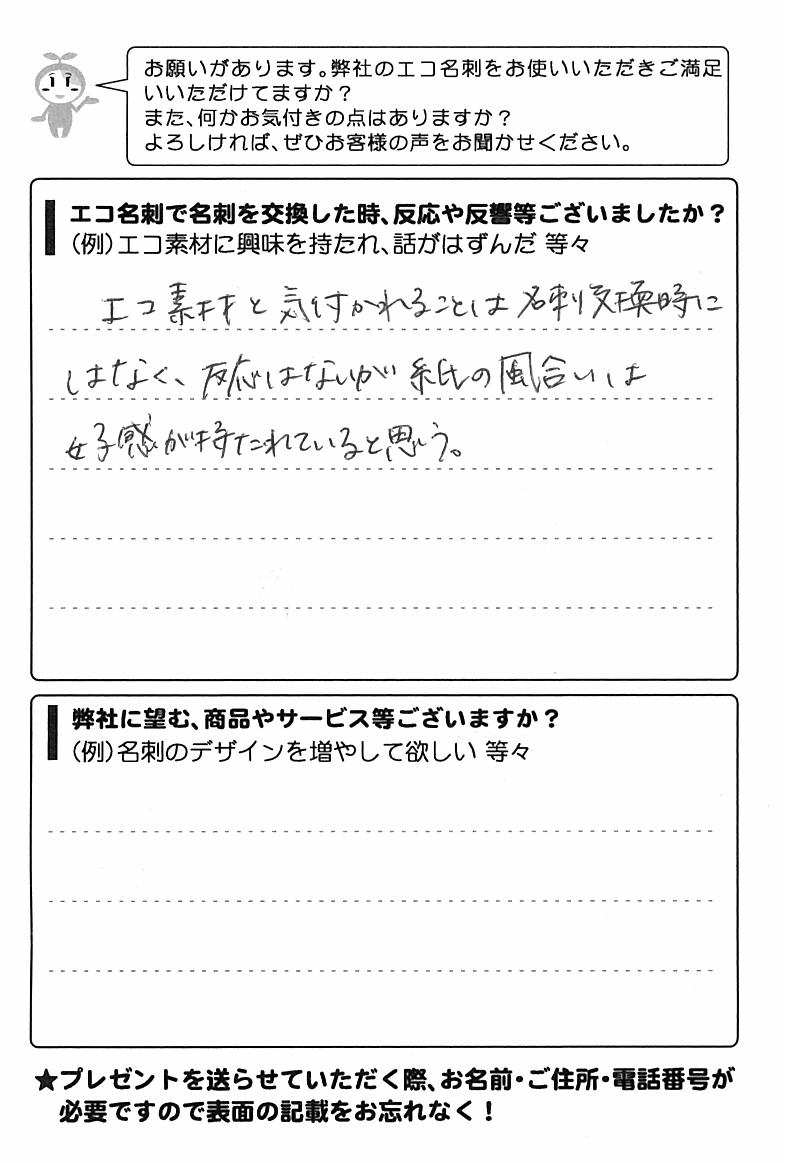 お願いがあります。弊社のエコ名刺をお使いいただきご満足
いいただけてますか？
また、何かお気付きの点はありますか？
よろしければ、ぜひお客様の声をお聞かせください。
エコ名刺で名刺を交換した時、反応や反響等ございましたか？
（例）エコ素材に興味を持たれ、話がはずんだ 等々
エコ素材と気付かれることは名刺交換時に
はなく、反応はないが紙の風合いは
好感が持たれていると思う。
弊社に望む、商品やサービス等ございますか？
（例）名刺のデザインを増やして欲しい 等々
★プレゼントを送らせていただく際、お名前・ご住所・電話番号が
必要ですので表面の記載をお忘れなく！